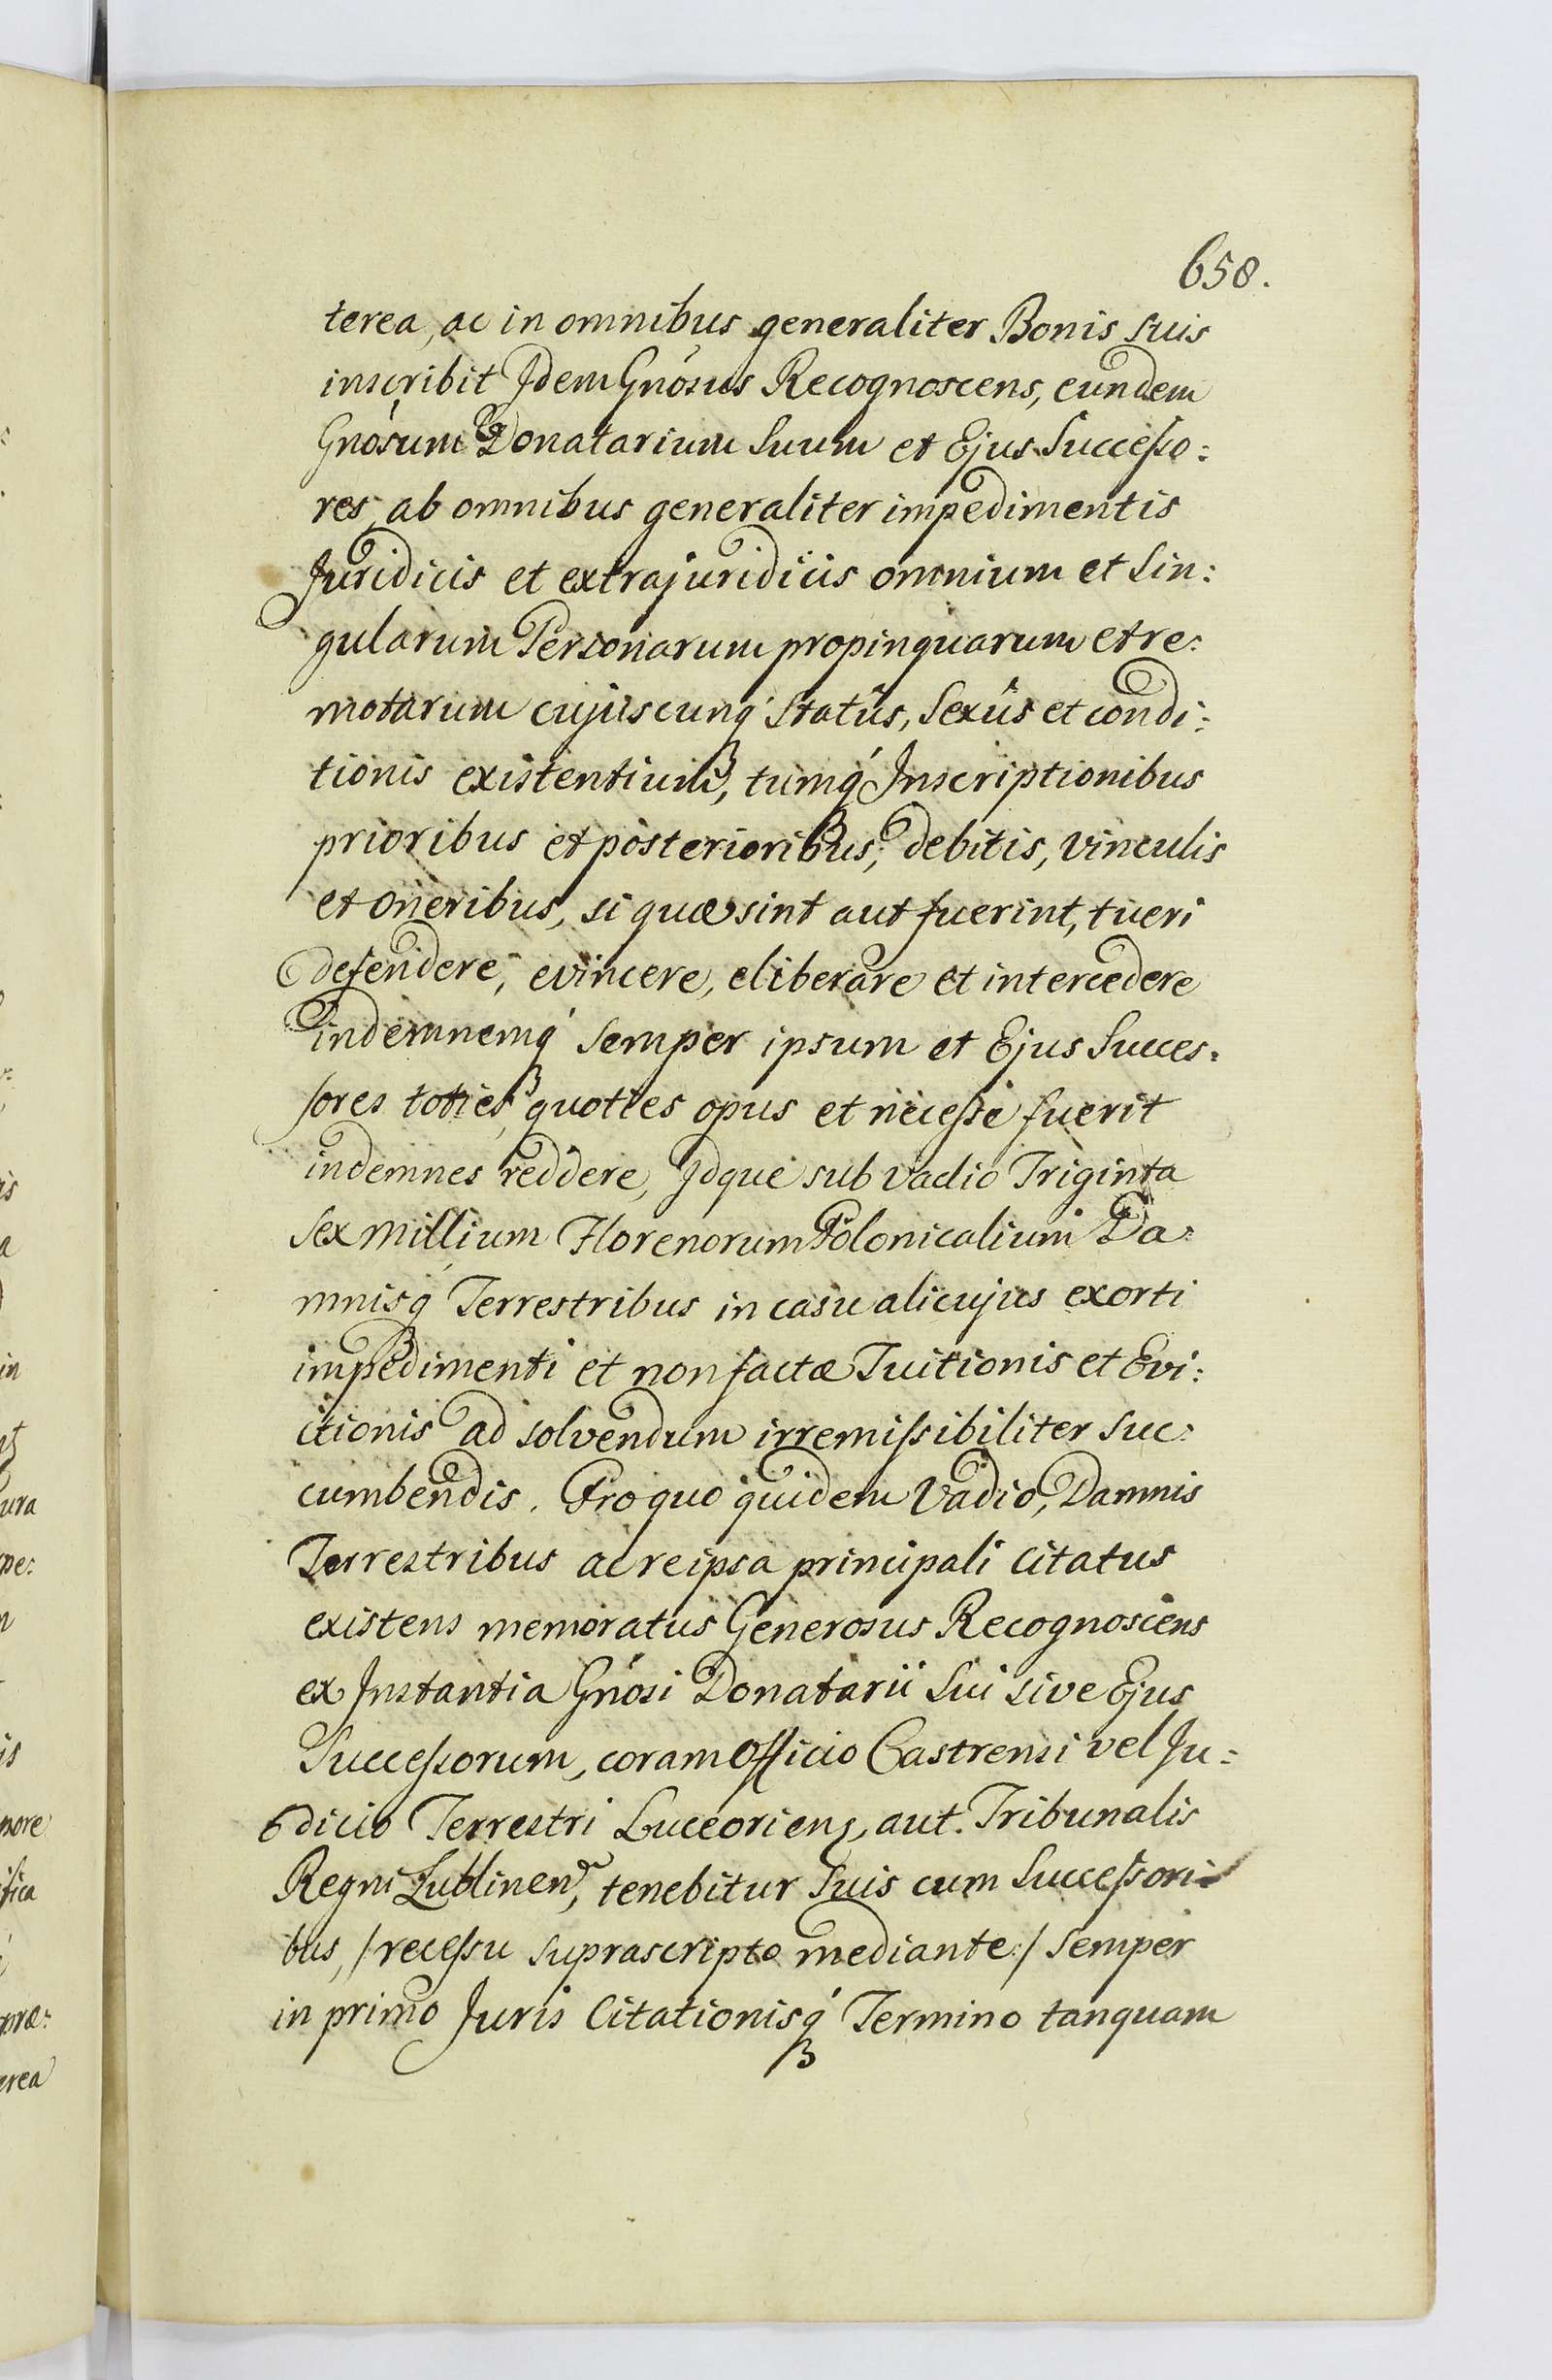 658.
terea, ac in omnibus generaliter Bonis suis
inscribit Idem Gnósus Recognoscens, eundem
Gnósum Donatarium Suum et Ejus Successo:
res, ab omnibus generaliter impedimentis
Juridicis et extrajuridicis omnium et Sin:
gularum Personarum propinquarum et re:
motarum cujuscunq́ Statûs, Sexûs et condi:
tionis existentium, tumq́ Inscriptionibus
prioribus et posterioribus, debitis, vinculis
et oneribus, si quæ sint aut fuerint, tueri
defendere, evincere, eliberare et intercedere
indemnemq́ semper ipsum et Ejus Succes:
sores toties, quoties opus et necesse fuerit
indemnes reddere, Idque sub vadio Triginta
Sex Millium Florenorum Polonicalium Da:
mnisq́ Terrestribus in casu alicujus exorti
impedimenti et non factæ Tuitionis et Evi:
ctionis ad solvendum irremissibiliter suc:
cumbendis. Pro quo quidem Vadio, Damnis
Terrestribus ac re ipsa principali citatus
existens memoratus Generosus Recognoscens
ex Instantia Gnósi Donatarii Sui sive Ejus
Successorum, coram Officio Castrensi vel Ju:
dicio Terrestri Luceoriens, aut Tribunalis
Regni Lublinen, tenebitur Suis cum Successori
bus, /recessu suprascripto mediante:/ semper
in primo Juris Citationisq́ Termino tanquam